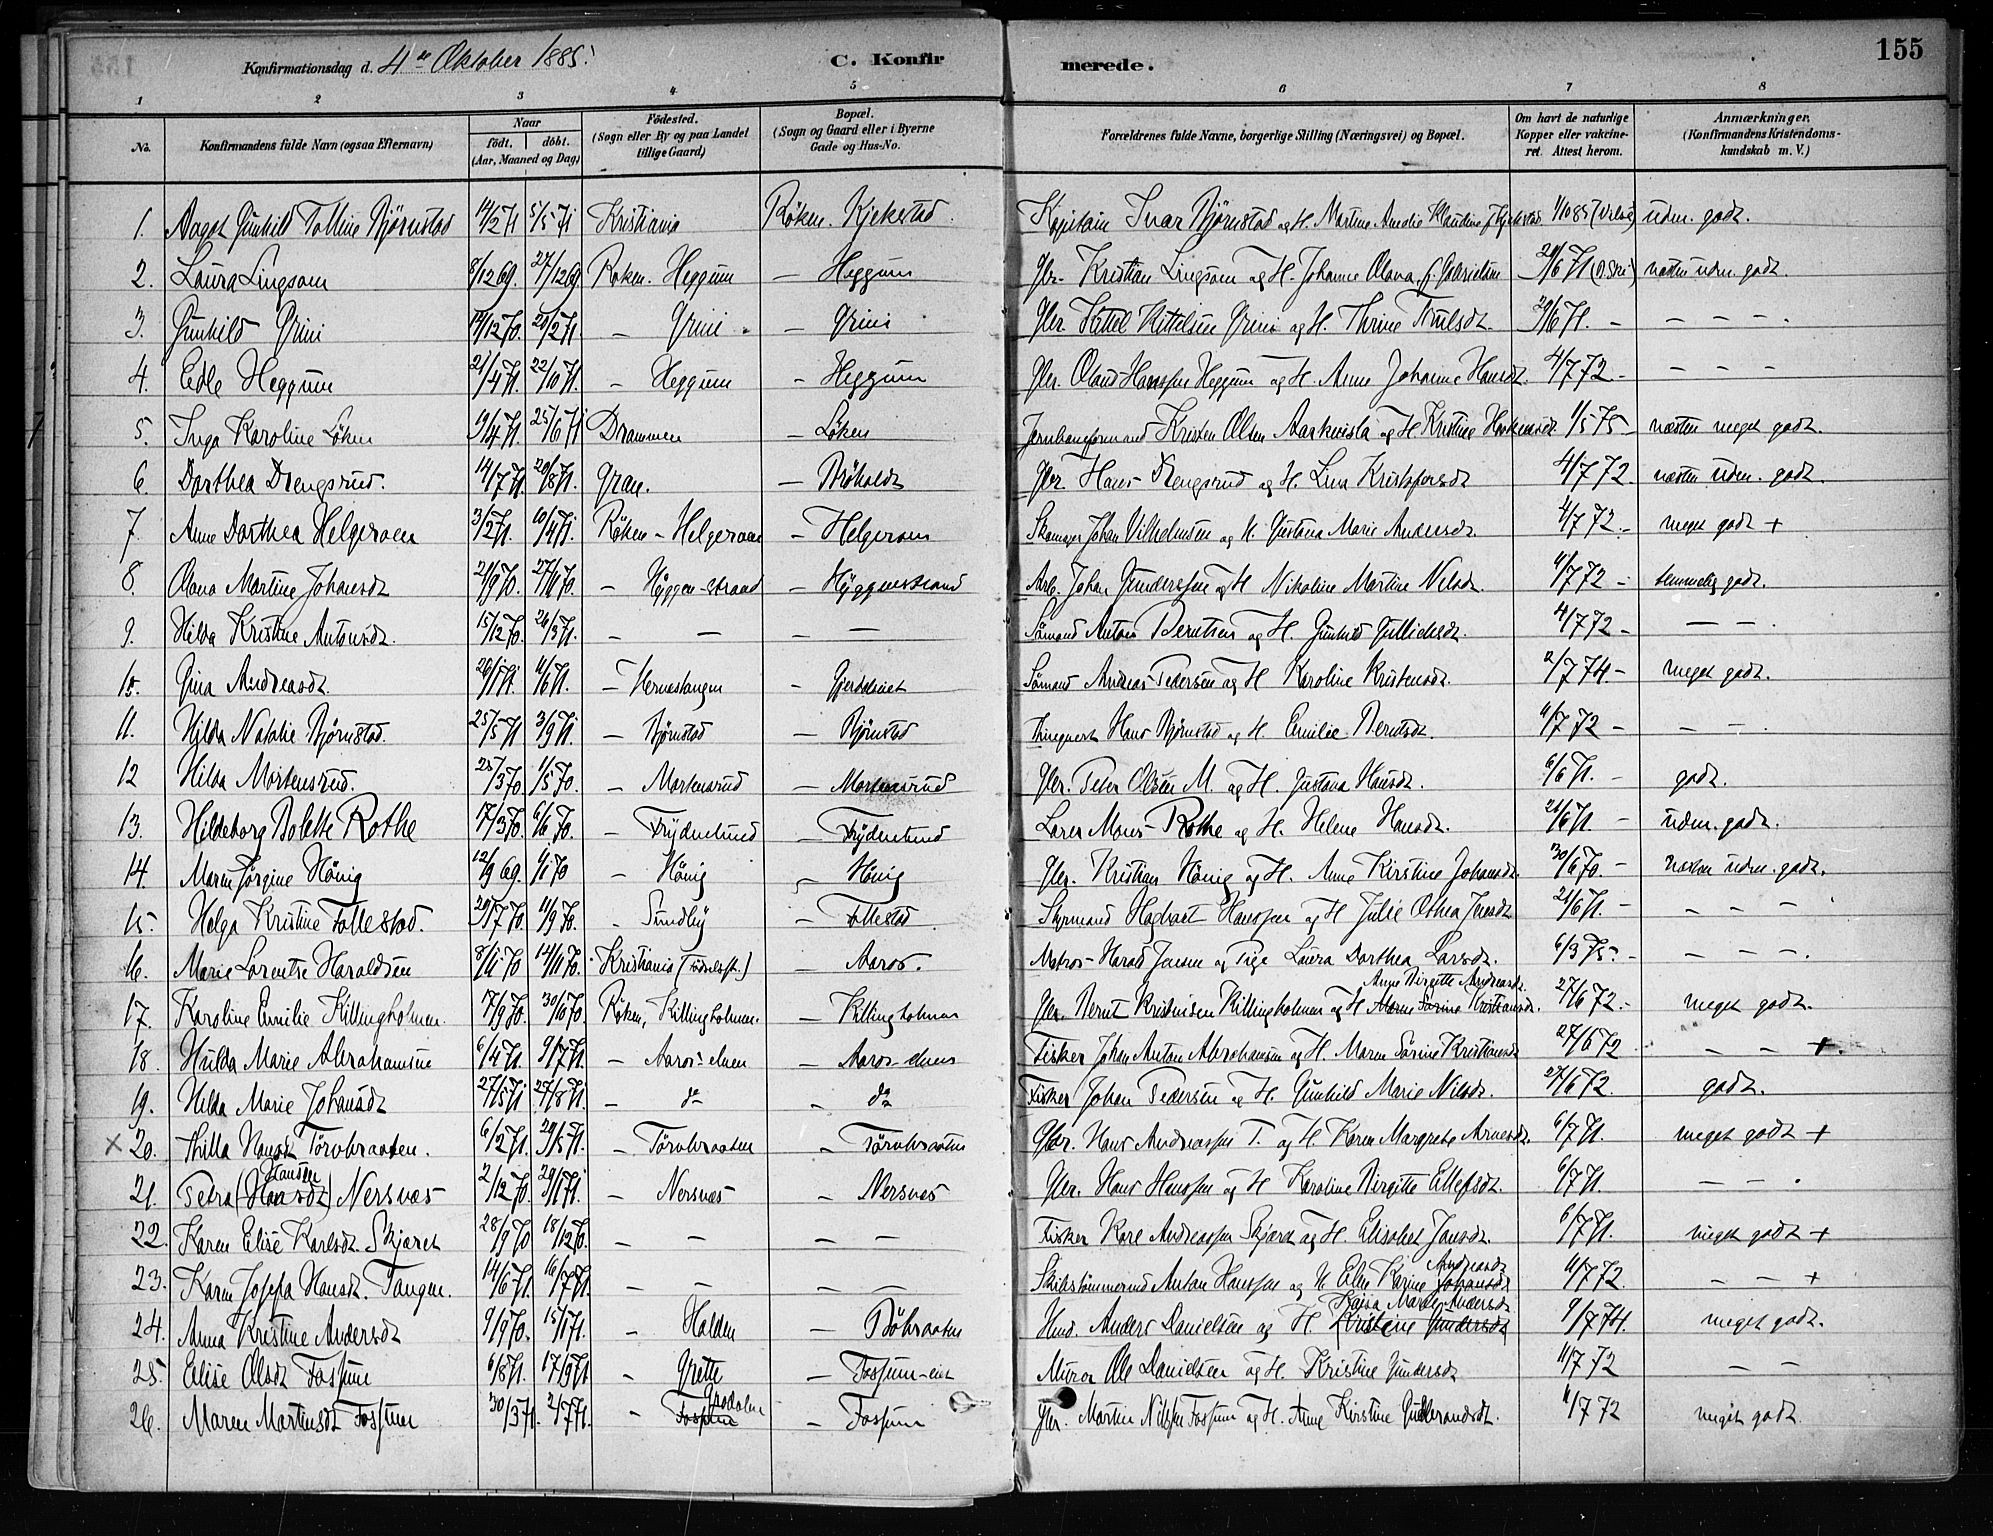 155
Konfirmationsdag d. 4de Oktober 1885. C. Konfirmerede.
1 2 3 4 5 6 7 8
No. Konfirmandens fulde Navn (ogsaa Efternavn) Naar født. døbt. (Aar, Maaned og Dag) Fødested. (Sogn eller By og paa Landet tillige Gaard) Bopæl. (Sogn og Gaard eller i Byerne Gade og Hus-No. Forældrenes fulde Navne, borgerlige Stilling (Næringsvei) og Bopæl. Om havt de naturlige Kopper eller vakcineret. Attest herom. Anmærkninger. (Konfirmandens Kristendomskundskab m. V.)
1. Aagot Gunhild Tolline Bjørnstad 14/2 71 5/5 71 Kristiania Røken. Kjekstad. Kapitain Ivar Bjørnstad og H. Martine Amalie Klaudine f. Kjekstad 1/10 85 udm. godt.
2. Laura Lingsom 8/12 69. 27/12 69 Røken. Heggum — Heggum Gbr. Kristian Lingsom og H. Johanne Olava f. 29/6 71 næsten udm. godt.
3. Gunhild Grini 14/12 70. 21/2 71 — Grini — Grini Gbr. Kittel Kittelsen Grini og H. Thrine Trulsdt. 29/6 71. — — — —
4. Edle Heggum 21/4 71. 22/10 71. — Heggum — Heggum Gbr. Olaus Hanssen Heggum og H. Anne Johanne Hansdt. 4/7 72 — — — —
5. Inga Karoline Løken 9/4 71. 25/6 71 Drammen — Løken Jernbaneformand Kristen Olsen Aaskvisla og H. Kristine 1/5 75 — næsten meget godt.
6. Dorthea Drengsrud. 14/7 71. 20/8 71. Gran. — Bøholdt Gbr. Hans Drengsrud og H. Lina Kristofersdt 4/7 72 næsten udm. godt.
7. Anne Dorthea Helgeroen 3/2 71. 10/4 71. Røken — Helgeroen — Helgeroen Skomager Johan Vilhelmsen og H. Gustava Marie Andersdt. 4/7 72. — meget godt +
8. Olava Martine Johansdt 21/9 70. 27/11 70 — Høggen-strand — Høggenstrand Arb. Johan Gunderssen og H. Nikoline Martine Nilsdt. 4/7 72 — temmelig godt.
9. Hilda Kristine Antonsdt. 15/12 70. 26/3 71. — — — — Sømand Anton Berntsen og H. Gunhild Gullichsdt. 4/7 72 — — — .
10. Gina Andreasdt. 26/1 71. 4/6 71. — Hernestangen — Gjerdalviet Sømand Andreas Pedersen og H. Karoline Kristensdt. 2/7 74 — meget godt.
11. Hilda Natalie Bjørnstad. 25/5 71 3/9 71. — Bjørnstad — Bjørnstad Hans Bjørnstad og H. Emilie Berntsdt. 4/7 72 — — — .
12 Hilda Mortensrud. 25/3 70. 1/5 70. — Mortensrud — Mortensrud Gbr. Peter Olsen M. og H. Gustava Hansdt. 6/6 71. — godt.
13. Hildeborg Bolette Rothe 17/3 70. 6/6 70. — Frydenlund — Frydenlund Lærer Mons Rothe og H. Helene Hansdt. 26/6 71. — udm. godt.
14. Maren Jørgine Hønig 12/9 69. 9/1 70 — Hønig — Hønig Gbr. Kristian Hønig og H. Anne Kirstine Johansdt. 30/6 70. — næsten udm. godt.
15. Helga Kristine Follestad. 29/7 70. 11/9 70. — Sundby — Follestad Styrmand Hagbart Hanssen og H. Julie Othea Jensdt 26/6 71. — — — —
16. Marie Lorentse Haraldsen 8/11 70 14/11 70. Kristiania — Aaros. Matros Harald Jensen og Pige Laura Dorthea Larsdt. 6/3 75. — — — —
17. Karoline Emilie Killingholmen. 7/9 70. 30/10 70. Røken, Killingholmen. — Killingholmen Gbr. Bernt Kristensen Killingholmen og H. Anne Birgitte Andreasdt. Maren Sørine Kristiansdt. 27/6 72. — meget godt.
18. Hulda Marie Abrahamsen 6/4 71 9/7 71. — Aaros-elven — Aaros-elven Fisker Johan Anton Abrahamsen og H. Maren Sørine Kristiansdt 27/6 72 — — +.
19. Hilda Marie Johansdt 27/5 71 27/8 71. — do — do Fisker Johan Pedersen og H. Gunhild Marie Nilsdt. 27/6 72. godt.
× 20. Thilla Hansdt Tørvbraaten. 6/2 71. 29/5 71. — Tørvbraaten — Tørvbraaten Gbr. Hans Andreassen T. og H. Karen Margrethe Arnesdt. 6/7 71. meget godt +
21. Petra (Hansdt) Hansen Nersnæs 2/12 70. 29/1 71. — Nersnæs — Nersnæs Gbr. Hans Hanssen og H. Karoline Birgitte Ellefsdt. 6/7 71. — — .
22. Karen Elise Karlsdt. Skjæret 28/9 70 18/12 70. — — — — Fisker Karl Andreassen Skjæret og H. Elisabet Jansdt. 6/7 71. meget godt +
23. Karen Josefa Hansdt. Tangen. 14/6 71. 16/7 71. — — — — Skibstømmermand Anton Hanssen og H. Elen Karine Andreasdt Johansdt 4/7 72. — — +
24. Anna Kristine Andersdt 9/9 70. 15/1 71. — Holden — Bøbraaten Husm. Anders Danielsen og H. Kajsa Marie Andersdt (Kristine Gundersdt 9/7 74. meget godt.
25. Elise Olsdt Fossum 6/8 71. 17/9 71. — Grette — Fossum-eiet Murer Ole Danielsen og H. Kristine Gundersdt 4/7 72 — —
26. Maren Martinsdt Fossum 30/3 71. 2/7 71. — Fossum Grødalen — Fossum Gbr. Martin Nilssen Fossum og H. Anne Kirstine Gulbrandsdt. 4/7 72 meget godt.